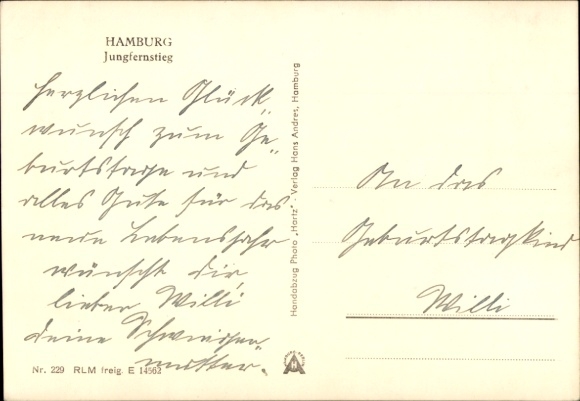 HAMBURG
Jungfernstieg
Herzlichen Glück„
wunsch zum Ge„
burtstage und
alles Gute für das
neue Lebensjahr
wünscht dir,
lieber Willi
deine Schwieger„
mutter.
Nr. 229 RLM freig. E 14562
Handabzug Photo „Hartz" - Verlag Hans Andres, Hamburg
An das
Geburtstagskind
Willi